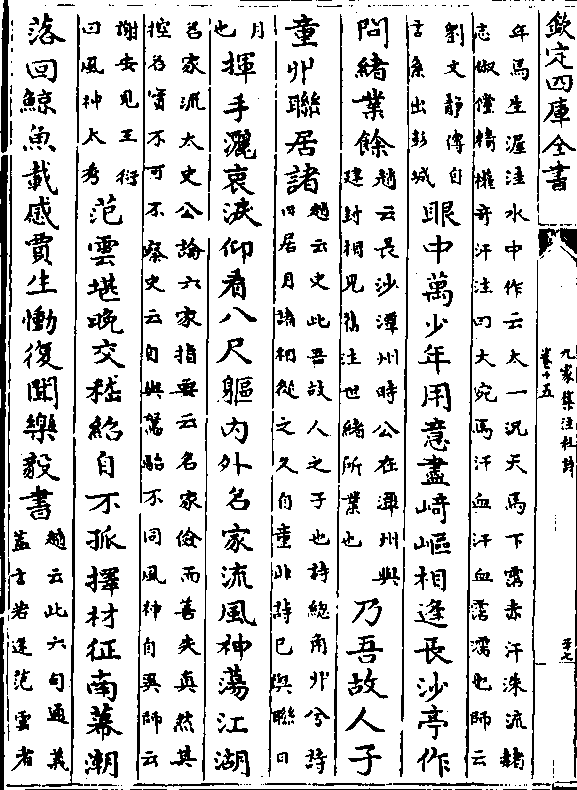 欽定四庫全書
九家集注杜詩
卷十五
年馬生渥洼水中作云太一況天馬下霑赤汗沬流赭
志俶儻精權奇汗注曰大宛馬汗血汗血霑濡也師云
劉文靜傳自
言系出彭城
眼中萬少年用意盡崎嶇相逢長沙亭乍
問緒業餘
趙云長沙潭州時公在潭州與
建封相見舊注世緒所業也
乃吾故人子
童丱聯居諸
趙云史此吾故人之子也詩總角丱兮詩
日居月諸相從之久自童丱詩已與聯日
月
也
揮手灑衷淚仰看八尺軀內外名家流風神蕩江湖
名家流太史公論六家指要云名家儉而善失真然其
控名實不可不察史云自與駑駘不同風神自異師云
謝安見王衍
曰風神太秀
范雲堪晚交嵇紹自不孤擇材征南幕潮
落回鯨魚載感賈生慟復聞樂毅書
趙云此六句通義
蓋言若逢范雲者